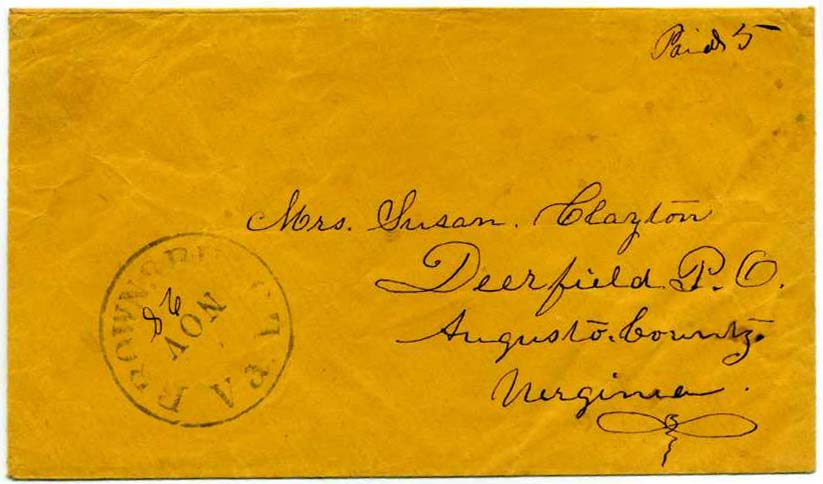 Paid 5
Mrs. Susan. Clayton
Deerfield P. O.
Augusta. County.
Verginia.
BROWNSBURG VA
NOV